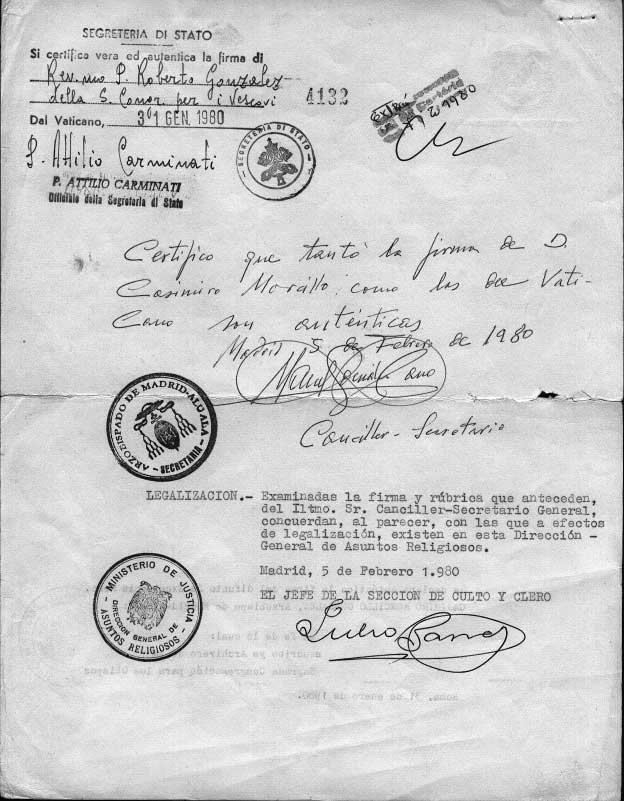 SEGRETERIA DI STATO
Si certifica vera ed autentica la firma di
Rev.mo P. Roberto Gonzalez
della S. Congr. per i Vescovi
4132
Dal Vaticano, 31 GEN. 1980
P. Attilio Carminati
SEGRETERIA DI STATO
P. ATTILIO CARMINATI
Officiale della Segreteria di Stato
1980
Certifico que tanto la firma de D.
Casimiro Morcillo como las del Vati-
cano son auténticas
Madrid 5 de Febrero de 1980
Canciller-Secretario
ARZOBISPADO DE MADRID-ALCALA
SECRETARIA
LEGALIZACION.- Examinadas la firma y rúbrica que anteceden,
del Iltmo. Sr. Canciller-Secretario General,
concuerdan, al parecer, con las que a efectos
de legalización, existen en esta Dirección -
General de Asuntos Religiosos.
Madrid, 5 de Febrero 1.980
EL JEFE DE LA SECCION DE CULTO Y CLERO
MINISTERIO DE JUSTICIA
DIRECCION GENERAL DE
ASUNTOS RELIGIOSOS
Roma, 31 de enero de 1980.